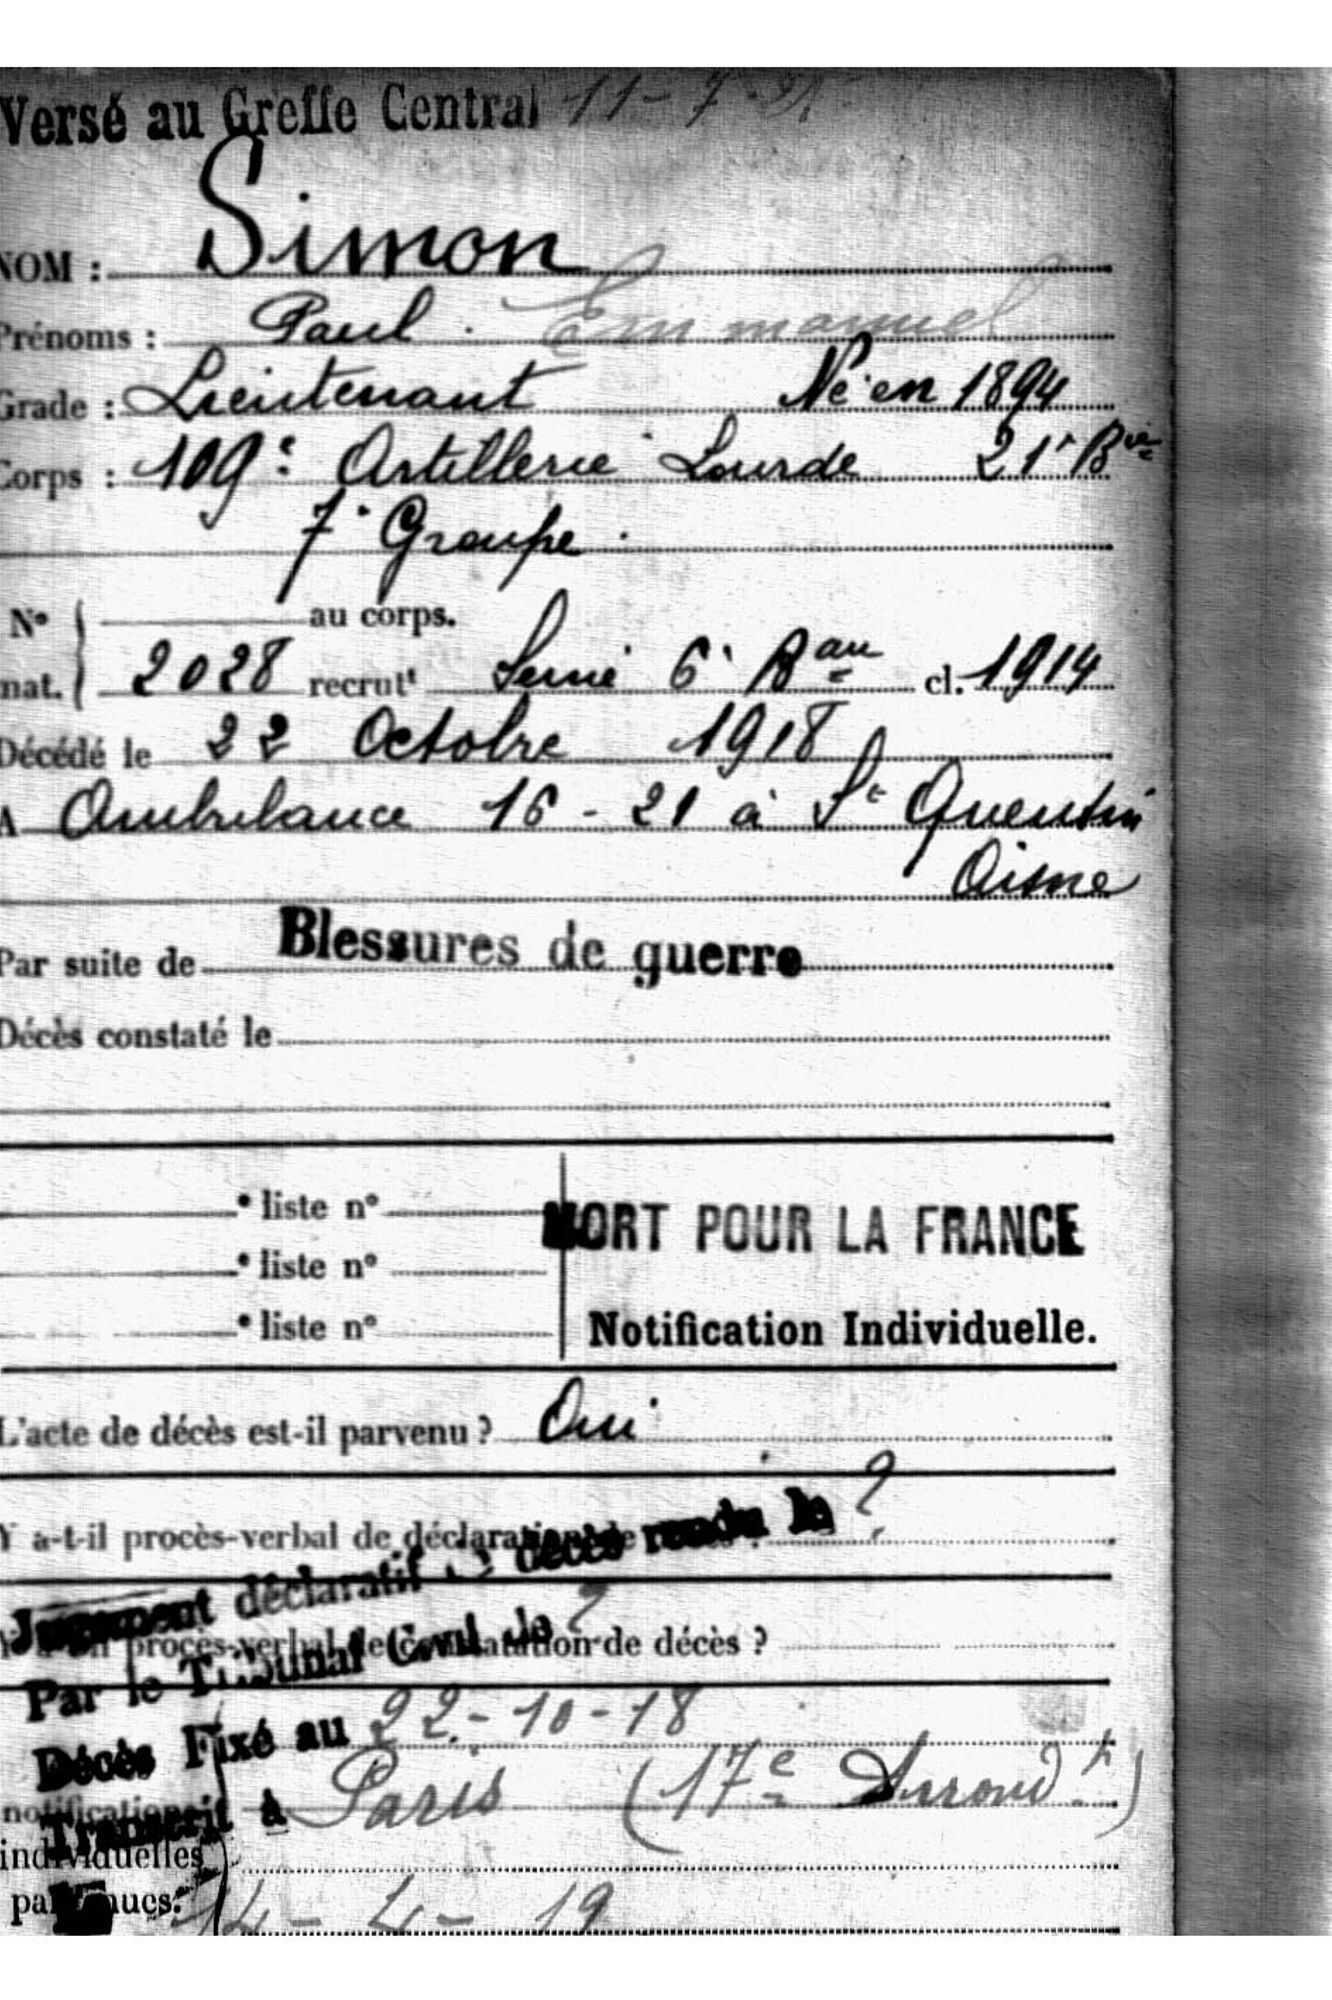 Versé au Greffe Central 11-7
NOM : Simon
Prénoms : Paul Emmanuel
Grade : Lieutenant Né en 1894
Corps : 109e Artillerie Lourde 21e Bie
7e Groupe
N° au corps.
mat. 2028 recrutt Seine 6e Bau cl. 1914
Décédé le 22 Octobre 1918
A Ambulance 16-21 à St Quentin
Aisne
Par suite de Blessures de guerre
Décès constaté le
liste n°
MORT POUR LA FRANCE
liste n°
liste n°
Notification Individuelle.
L'acte de décès est-il parvenu ? Oui
Y a-t-il procès-verbal de déclaration de ?
Jugement déclaratif décès rendu le
procès-verbal de constatation de décès ? ?
Par le Tribunal Civil de
Décès Fixé au 22-10-18
Transcrit à Paris (17e Arrondt)
notifications
individuelles
parvenues.
14-4-19